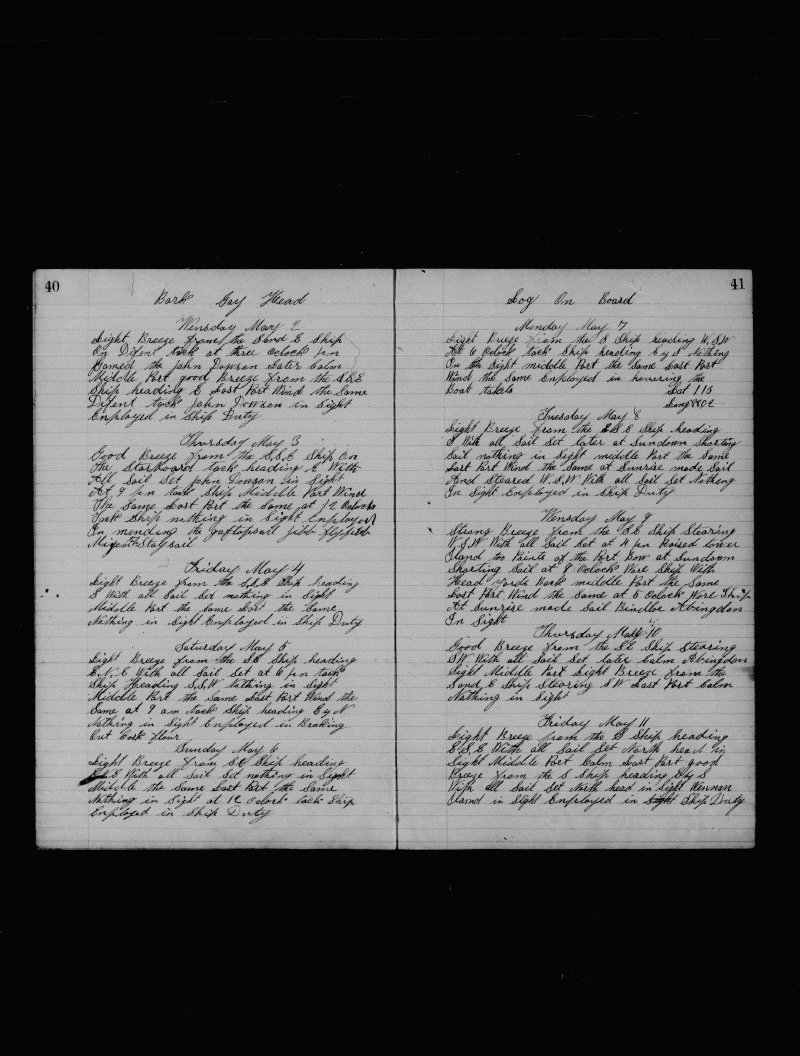 40
Bark Gay Head
Wensday May 2
Light Breeze from the S and E Ship
On Difent tack at three Oclock pm
Gamed the John Dowson Later Calm
Middle Part good Breeze from the
Ship heading E Last Part Wind the Same
Difent tack John Dowson in Sight
Employed in Ship Duty
Thursday May 3
Good Breeze from the S,S,E Ship On
The Starboard tack heading E With
All Sail Set John Dowson in Sight
At 9 pm tack Ship Middle Part Wind
The Same Last Part the Same at 12 Oclock
Tack Ship nothing in Sight Employed
In mending the gaftopsail jibb flyjibb
Staysail
Friday May 4
Light Breeze from the S,S,E Ship heading
S With all Sail Set nothing in Sight
Middle Part the Same Last the Same
Nothing in Sight Employed in Ship Duty
Saturday May 5
Light Breeze from the SE Ship heading
E,N,E With all Sail Set at 6 pm tack
Ship Heading S,S,W Nothing in Sight
Middle Part the Same Last Part Wind the
Same at 9 am tack Ship heading E by N
Nothing in Sight Employed in Braking
Out Cask flour
Sunday May 6
Light Breeze from SE Ship heading
With all Sail Set nothing in Sight
Middle the Same Last Part the Same
Nothing in Sight at 12 Oclock tack Ship
Employed in Ship Duty
41
Log On Board
Monday May 7
Light Breeze from the S Ship heading W.S.W
At 6 Oclock tack Ship heading E by S Nothing
In Sight middle Part the Same Last Part
Wind the Same Employed in the
Boat takels Lat 115
Long
Tuesday May 8
Light Breeze from the E,S,E Ship heading
S With all Sail Set later at Sundown Shorting
Sail nothing in Sight middle Part the Same
Last Part Wind the Same at Sunrise made Sail
And Steared W.S.W With all Sail Set Nothing
In Sight Employed in Ship Duty
Wensday May 9
Strong Breeze from the S.E Ship Stearing
W,S,W With all Sail Set at 4 pm Raised tower
Iland too Points of the Port Bow at Sundown
Shorting Sail at 8 Oclock Ware Ship With
Head yards Back middle Part the Same
Last Part Wind the Same at 5 Oclock Ware Ship
At Sunrise made Sail Bindloe Abingdon
In Sight
Thursday May 10
Good Breeze from the SE Ship Stearing
SW With all Sail Set later Calm Abingdon
Sight Middle Part Light Breeze from the
S and E Ship Stearing SW Last Part Calm
Nothing in Sight
Friday May 11
Light Breeze from the S Ship heading
E,S,E With all Sail Set North head in
Sight Middle Part Calm Last Part good
Breeze from the S Ship heading E by S
With all Sail Set North head in Sight Wenman
Iland in Sight Employed in Ship Duty